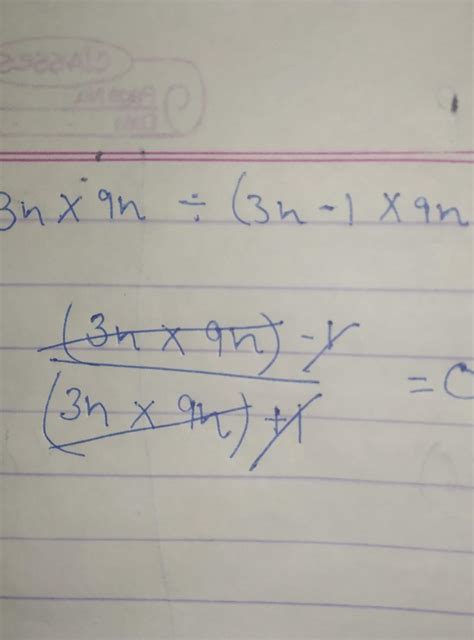 CLASSES
Page No.
Date
3n × 9n ÷ (3n - 1 × 9n
(3n × 9n) - 1
(3n × 9n) + 1
= 0